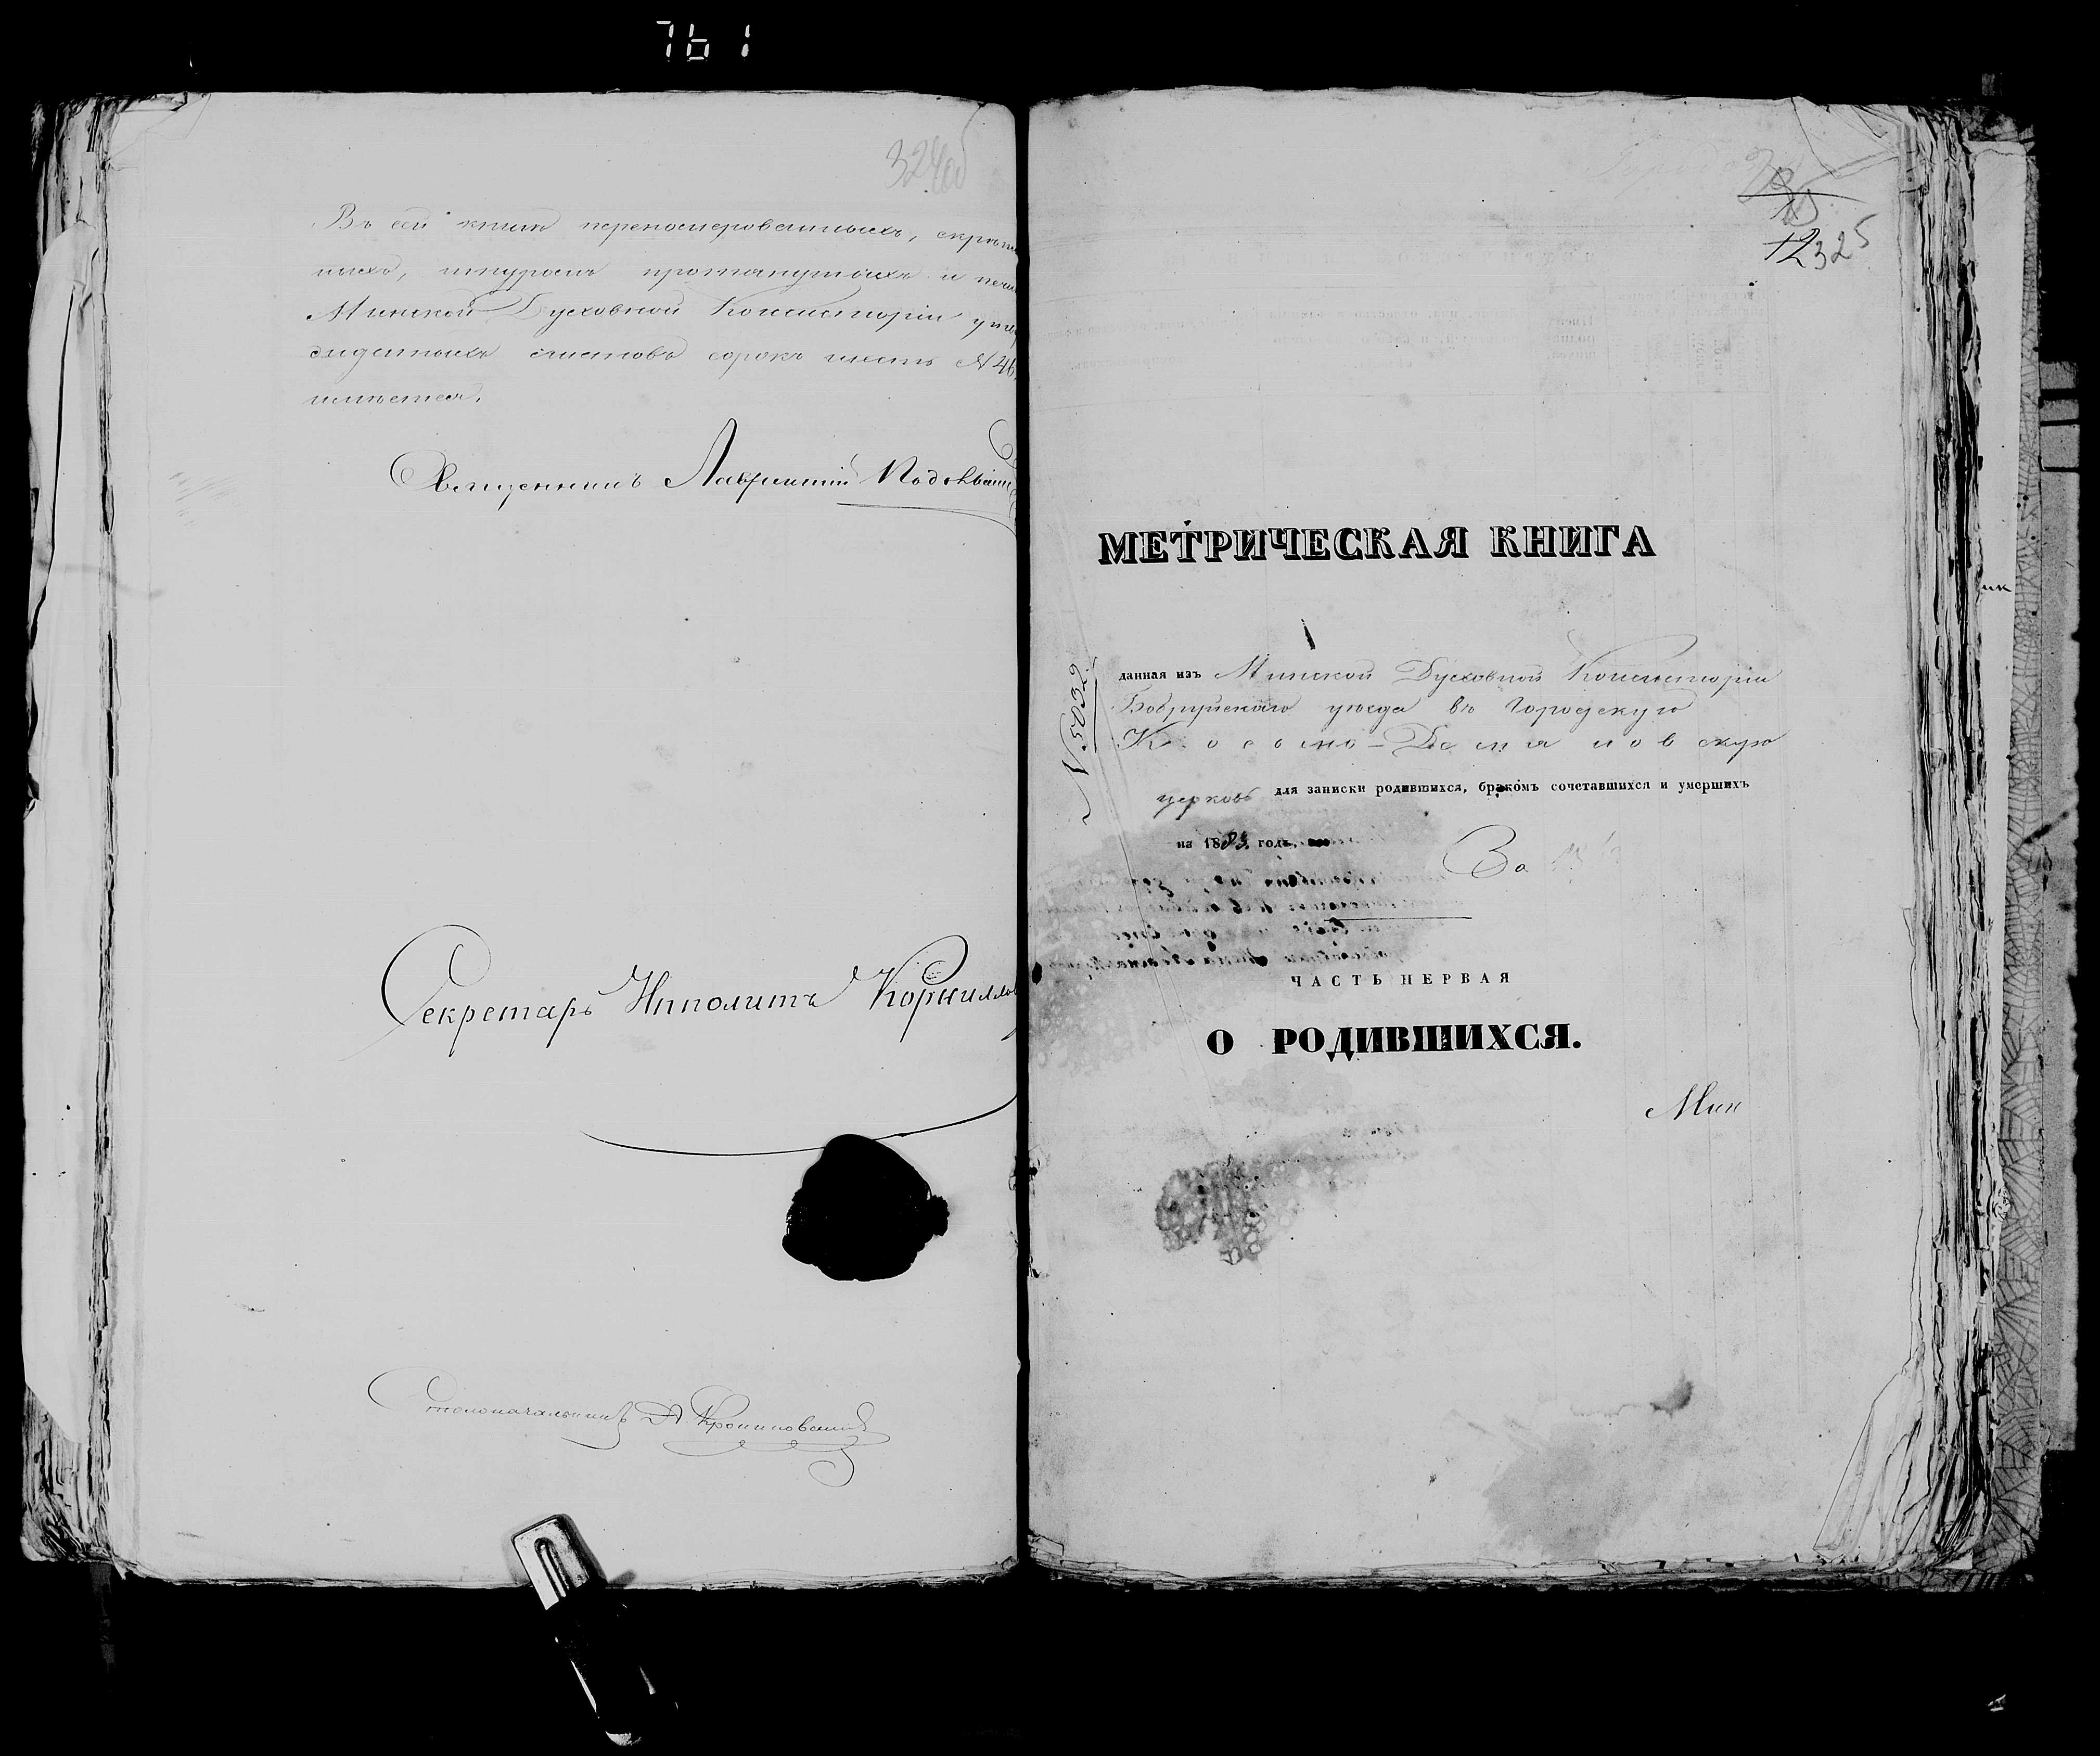 761
324об
Въ сей книгѣ перенумерованныхъ, скрѣп
ныхъ, шнуромъ протянутыхъ и печа
Минской Духовной Консисторіи утвер
жденныхъ листовъ сорокъ шесть N 46.
имѣется.
Священникъ Лаврентій
Секретарь Ипполитъ Корнилов
Столоначальникъ
325
МЕТРИЧЕСКАЯ КНИГА
N 5032
данная изъ Минской Духовной Консисторіи
Бобруйскаго уѣзда въ Городскую
Косьмо-Даміановскую
церковь для записки родившихся, бракомъ сочетавшихся и умершихъ
на 1883 годъ.
За
ЧАСТЬ ПЕРВАЯ
О РОДИВШИХСЯ.
Мин